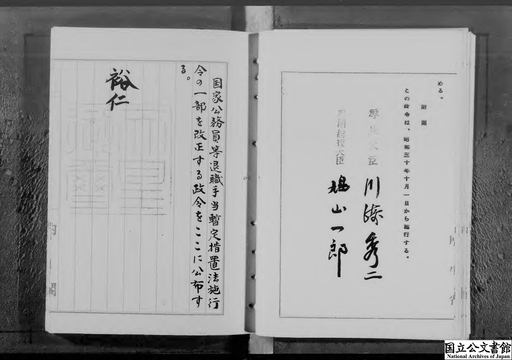 める。
附則
この政令は、昭和三十年十月一日から施行する。
内閣総理大臣
川崎秀二
鳩山一郎
国家公務員等退職手当暫定措置法施行
令の一部を改正する政令をここに公布す
る。
裕仁
国立公文書館
National Archives of Japan